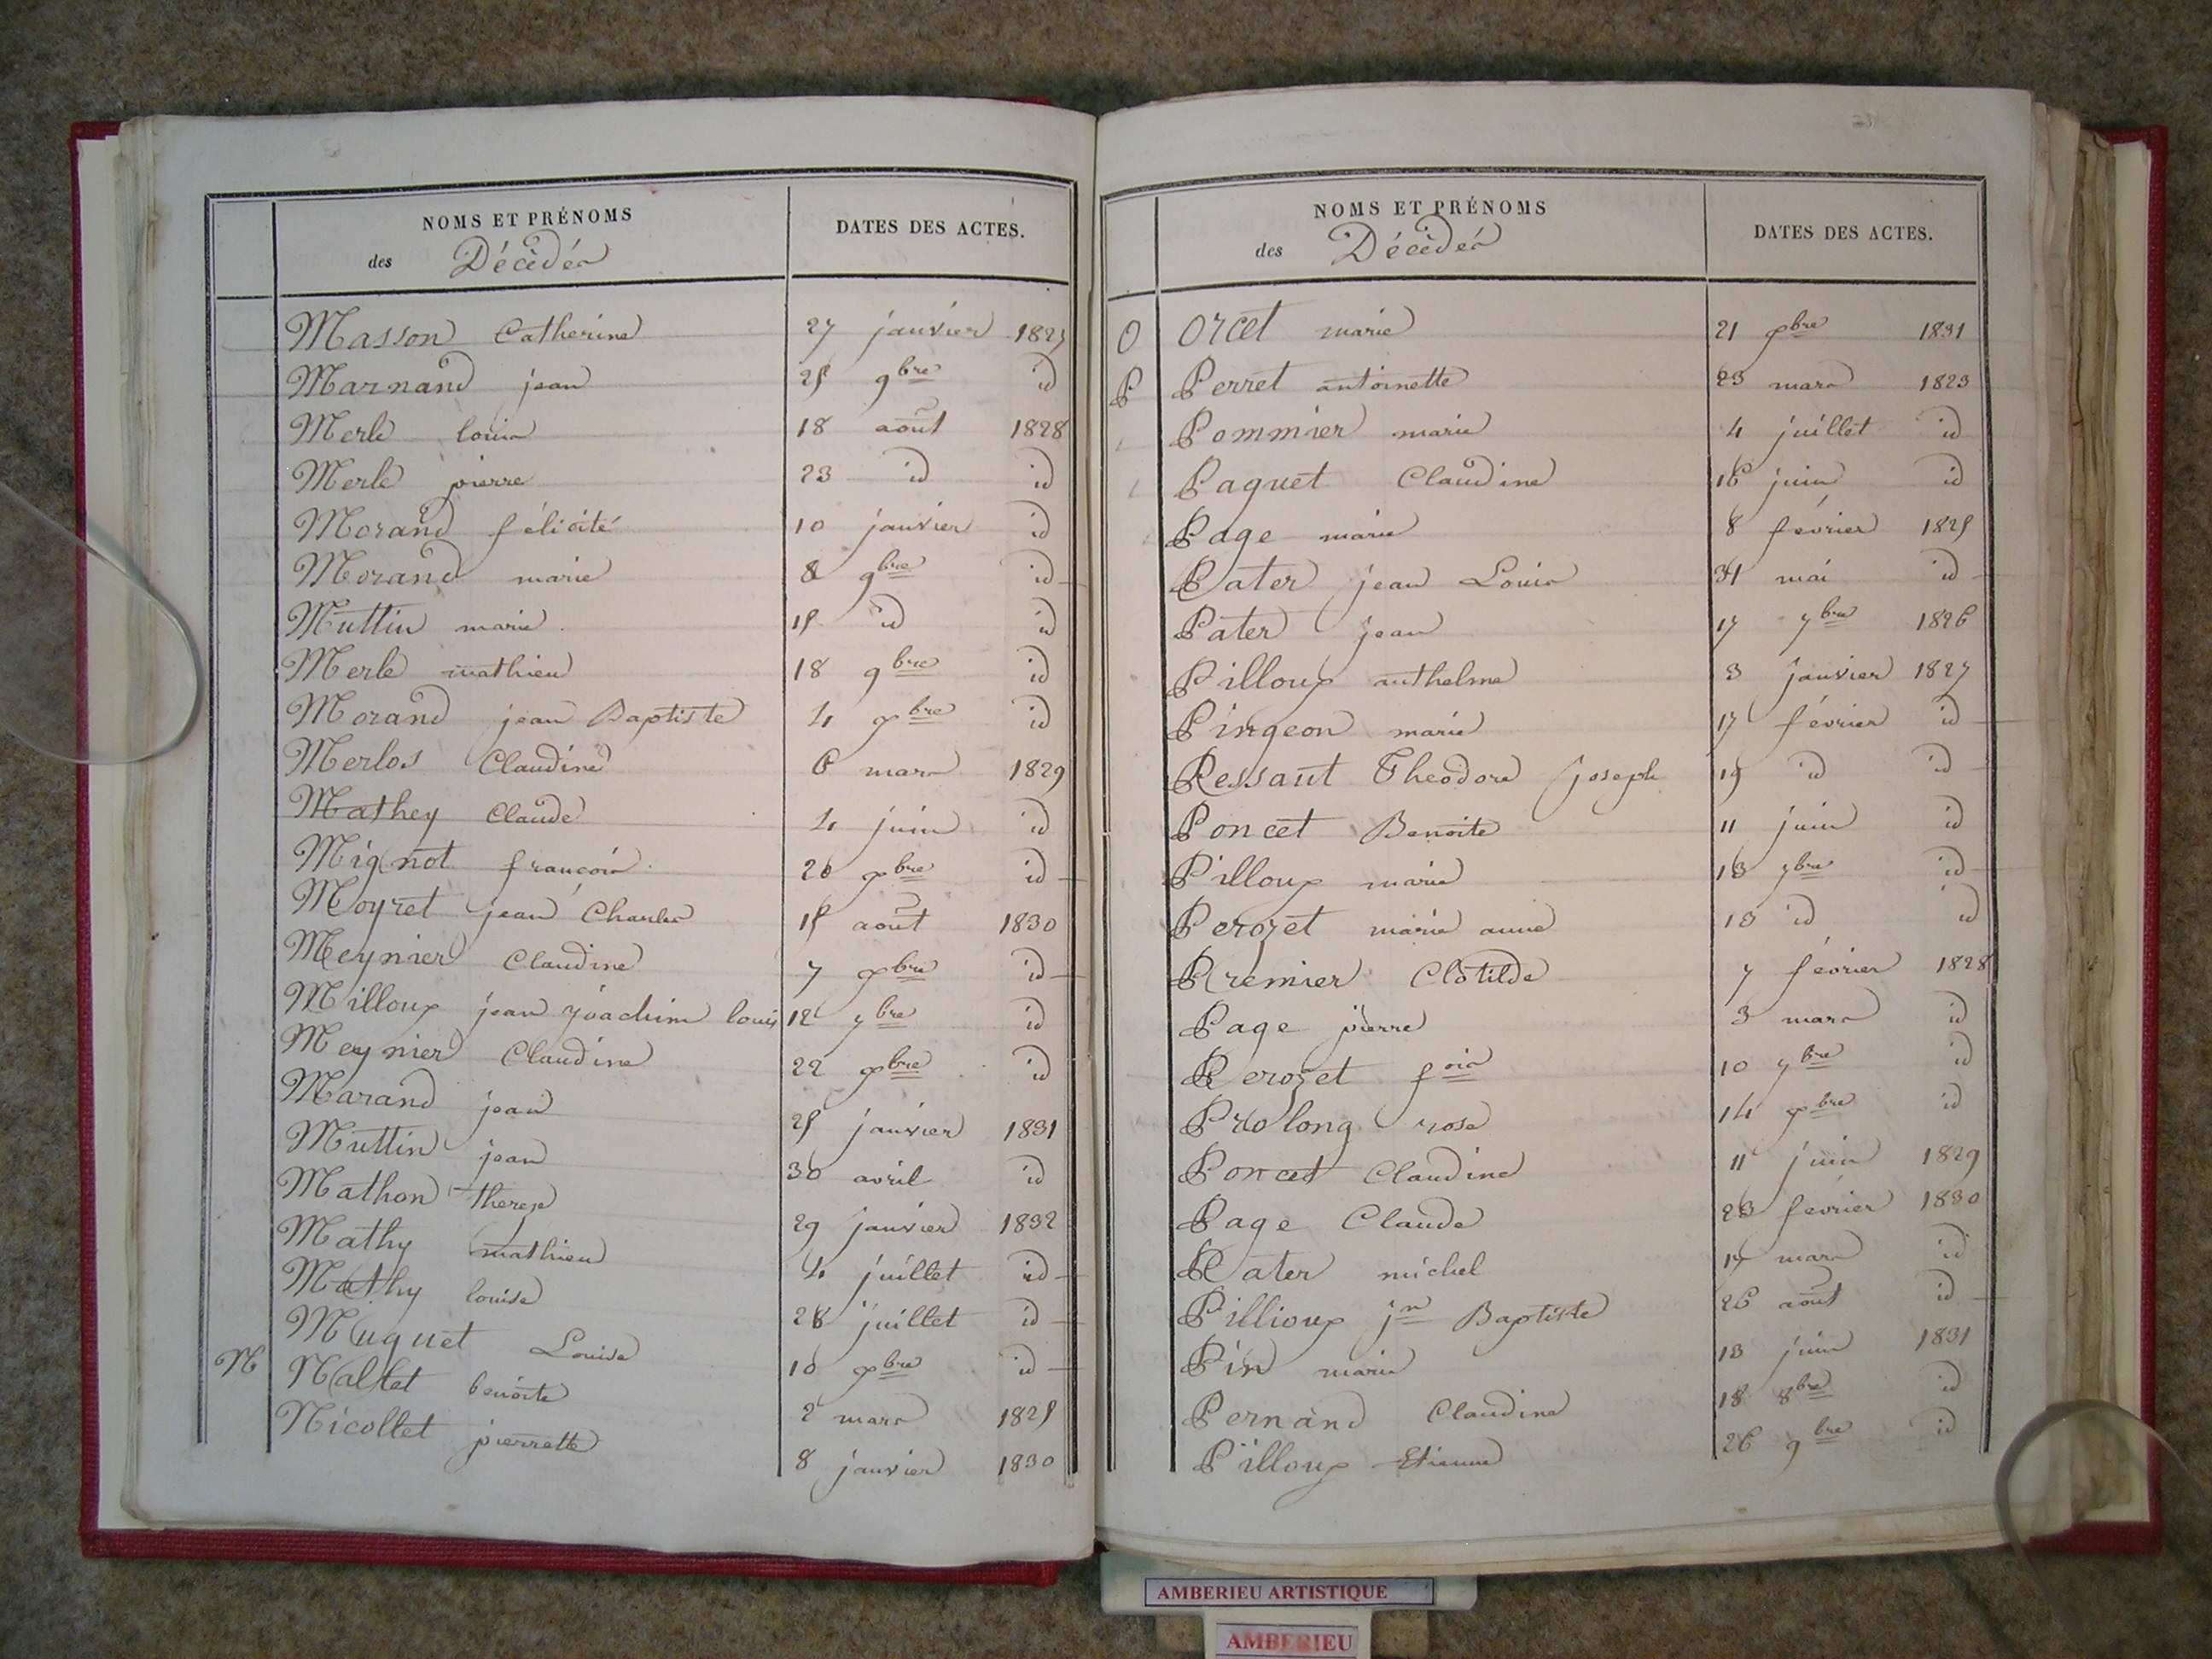 NOMS ET PRÉNOMS
des Décédés
DATES DES ACTES.
Masson Catherine 27 janvier 1825
Marnand jean 25 9bre id
Merle louis 18 août 1828
Merle pierre 23 id id
Morand félicité 10 janvier id
Morand marie 8 9bre id
Muttin marie 15 id id
Merle mathieu 18 9bre id
Morand jean Baptiste 4 xbre id
Merlos Claudine 6 mars 1829
Mathey Claude 4 juin id
Mignot françois 26 xbre id
Moyret jean Charles 15 août 1830
Meynier Claudine 7 xbre id
Milloux jean joachim louis 12 7bre id
Meynier Claudine 22 xbre id
Marand jean 25 janvier 1831
Muttin jean 30 avril id
Mathon therese 29 janvier 1832
Mathy mathieu 4 juillet id
Mathy louise 28 juillet id
Muquet Louise 10 xbre id
N Mallet benoite 2 mars 1825
Nicollet pierrette 8 janvier 1830
NOMS ET PRÉNOMS
des Décédés
DATES DES ACTES.
O Orcet marie 21 xbre 1831
P Perret antoinette 23 mars 1823
Pommier marie 4 juillet id
Paquet Claudine 16 juin id
Page marie 8 février 1825
Pater jean Louis 31 mai id
Pater jean 17 7bre 1826
Pilloux anthelme 3 janvier 1827
Pingeon marie 17 février id
Pessaut Théodore joseph 19 id id
Poncet Benoite 11 juin id
Pilloux marie 13 7bre id
Perozet marie anne 18 id id
Premier Clotilde 7 février 1828
Page pierre 3 mars id
Perozet fois 10 7bre id
Prolong rose 14 xbre id
Poncet Claudine 11 juin 1829
Page Claude 23 février 1830
Pater michel 17 mars id
Pillioux jn Baptiste 26 août id
Pin marie 13 juin 1831
Pernand Claudine 18 8bre id
Pilloux Etienne 26 9bre id
AMBERIEU ARTISTIQUE
AMBERIEU